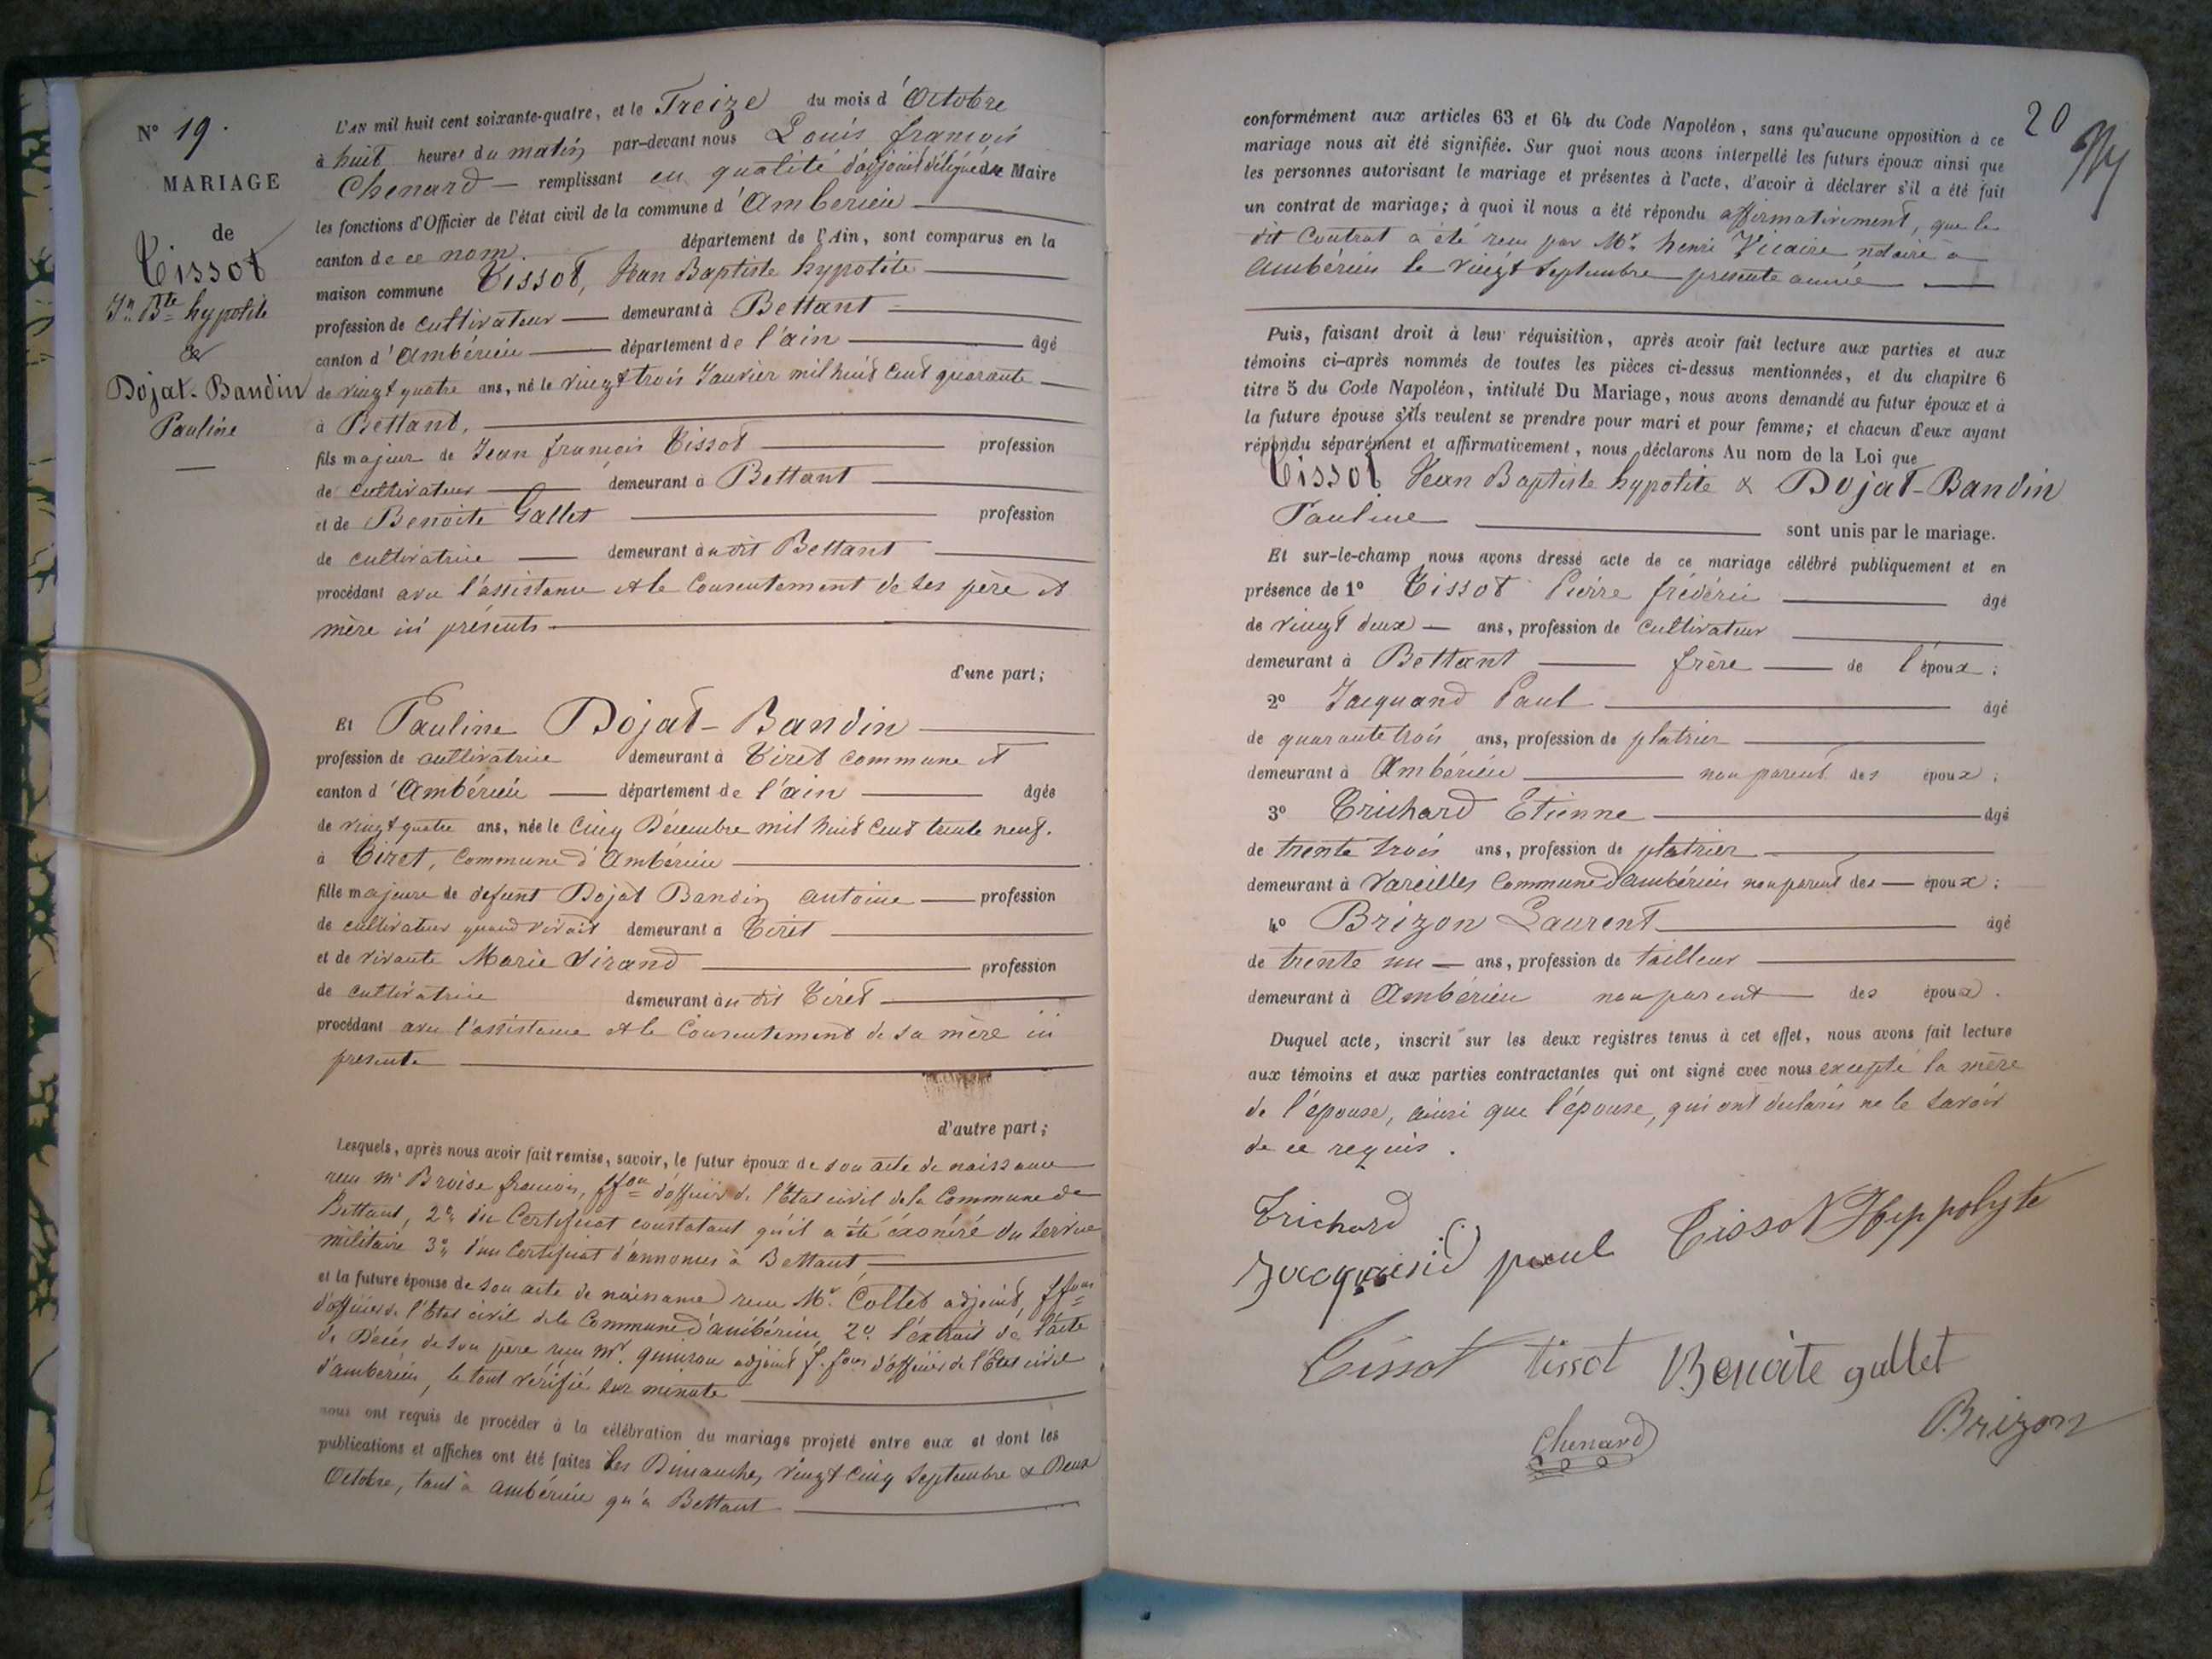 N° 19.
MARIAGE
de
Tissot
Jn Bte hypolite
&
Dojat-Bandin
Pauline
L'AN mil huit cent soixante-quatre, et le Treize du mois d'Octobre
à huit heures du matin par-devant nous Louis françois
Chenard — remplissant en qualité d'adjoint délégué du Maire
les fonctions d'Officier de l'état civil de la commune d'Amberieu
canton de ce nom. département de l'Ain, sont comparus en la
maison commune Tissot, Jean Baptiste hypolite
profession de cultivateur — demeurant à Bettant
canton d'Ambérieu — département de l'ain — âgé
de vingt quatre ans, né le vingt trois Janvier mil huit cent quarante
à Bettant,
fils majeur de Jean françois Tissot — profession
de cultivateur — demeurant à Bettant
et de Benoite Gallet — profession
de cultivatrice — demeurant audit Bettant
procédant avec l'assistance et le Consentement de ses père et
mère ici présents
d'une part;
Et Pauline Dojat-Bandin
profession de cultivatrice demeurant à Tiret commune et
canton d'Ambérieu — département de l'ain — âgée
de vingt quatre ans, née le cinq Décembre mil huit cent trente neuf.
à Tiret, commune d'Ambérieu
fille majeure de defunt Dojat Bandin antoine — profession
de cultivateur quand vivait demeurant à Tiret
et de vivante Marie Sirand — profession
de cultivatrice demeurant au dit Tiret
procédant avec l'assistance et le Consentement de sa mère ici
presente
d'autre part;
Lesquels, après nous avoir fait remise, savoir, le futur époux de son acte de naissance
reçu Mr Broise françois, ffon d'officier de l'Etat civil de la Commune de
Bettant, 2° du Certificat constatant qu'il a été éxonéré du service
militaire 3° d'un Certificat d'annonces à Bettant,
et la future épouse de son acte de naissance reçu Mr. Collet adjoint, ffons
d'officier de l'Etat civil de la Commune d'ambérieu, 2° l'extrait de l'acte
de Décès de son père reçu Mr. adjoint f. fons d'officier de l'Etat civil
d'ambérieu, le tout vérifié sur minute
nous ont requis de procéder à la célébration du mariage projeté entre eux et dont les
publications et affiches ont été faites les Dimanches, vingt cinq Septembre & Deux
Octobre, tant à ambérieu qu'à Bettant
20
conformément aux articles 63 et 64 du Code Napoléon, sans qu'aucune opposition à ce
mariage nous ait été signifiée. Sur quoi nous avons interpellé les futurs époux ainsi que
les personnes autorisant le mariage et présentes à l'acte, d'avoir à déclarer s'il a été fait
un contrat de mariage; à quoi il nous a été répondu affirmativement, que le
dit Contrat a été reçu par Mr. henri Vicaire notaire à
Ambérieu le vingt Septembre presente année
Puis, faisant droit à leur réquisition, après avoir fait lecture aux parties et aux
témoins ci-après nommés de toutes les pièces ci-dessus mentionnées, et du chapitre 6
titre 5 du Code Napoléon, intitulé Du Mariage, nous avons demandé au futur époux et à
la future épouse s'ils veulent se prendre pour mari et pour femme; et chacun d'eux ayant
répondu séparément et affirmativement, nous déclarons Au nom de la Loi que
Tissot Jean Baptiste hypolite & Dojat-Bandin
Pauline — sont unis par le mariage.
Et sur-le-champ nous avons dressé acte de ce mariage célébré publiquement et en
présence de 1° Tissot Pierre frédéric — âgé
de vingt deux — ans, profession de cultivateur
demeurant à Bettant — frère — de l'époux;
2° Jacquand Paul — âgé
de quarante trois ans, profession de platrier
demeurant à Ambérieu — non parent des époux;
3° Trichard Etienne — âgé
de trente trois ans, profession de platrier
demeurant à Vareilles Commune d'ambérieu non parent des — époux;
4° Brizon Laurent — âgé
de trente un — ans, profession de tailleur
demeurant à Ambérieu non parent — des époux.
Duquel acte, inscrit sur les deux registres tenus à cet effet, nous avons fait lecture
aux témoins et aux parties contractantes qui ont signé avec nous excepté la mère
de l'épouse, ainsi que l'épouse, qui ont déclarés ne le savoir
de ce requis.
Trichard
Jacquand paul Tissot Hyppolyte
Tissot tissot Benoite gallet
Chenard Brizon